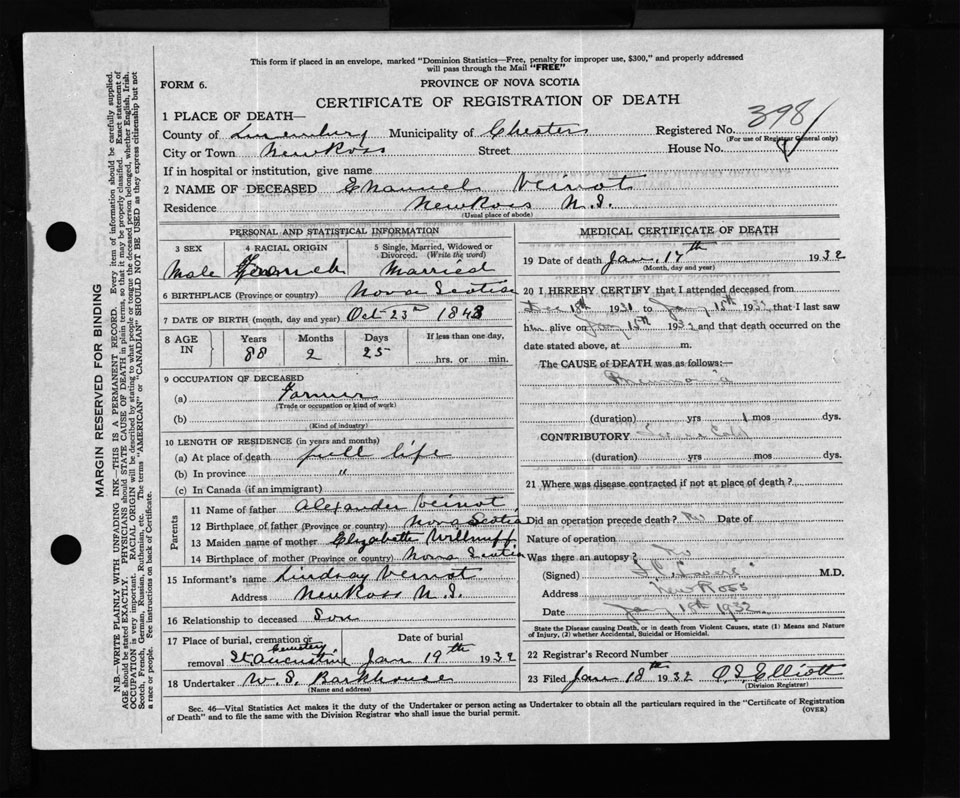 This form if placed in an envelope, marked "Dominion Statistics—Free, penalty for improper use, $300," and properly addressed
will pass through the Mail "FREE"
FORM 6.
PROVINCE OF NOVA SCOTIA
CERTIFICATE OF REGISTRATION OF DEATH
398
1 PLACE OF DEATH—
County of Lunenburg Municipality of Chester Registered No.
(For use of Registrar General only)
City or Town New Ross Street House No.
If in hospital or institution, give name
2 NAME OF DECEASED Emanuel Veinot
Residence New Ross N.S.
(Usual place of abode)
PERSONAL AND STATISTICAL INFORMATION
3 SEX
Male
4 RACIAL ORIGIN
French
5 Single, Married, Widowed or
Divorced. (Write the word)
Married
6 BIRTHPLACE (Province or country) Nova Scotia
7 DATE OF BIRTH (month, day and year) Oct 23 1843
8 AGE
IN
Years
88
Months
2
Days
25
If less than one day,
hrs. or min.
9 OCCUPATION OF DECEASED
(a) Farmer
(Trade or occupation or kind of work)
(b)
(Kind of industry)
10 LENGTH OF RESIDENCE (in years and months)
(a) At place of death full life
(b) In province "
(c) In Canada (if an immigrant)
Parents
11 Name of father Alexander Veinot
12 Birthplace of father (Province or country) Nova Scotia
13 Maiden name of mother Elizabeth
14 Birthplace of mother (Province or country) Nova Scotia
15 Informant's name Lindsay Veinot
Address New Ross N.S.
16 Relationship to deceased Son
17 Place of burial, cremation or
removal St Augustine Cemetery
Date of burial
Jan 19th 1932
18 Undertaker W. S. Barkhouse
(Name and address)
MEDICAL CERTIFICATE OF DEATH
19 Date of death Jan. 17th 1932
(Month, day and year)
20 I HEREBY CERTIFY that I attended deceased from
Dec 18th 1931 to Jany 15th 1932 that I last saw
him alive on Jany 15th 1932 and that death occurred on the
date stated above, at m.
The CAUSE OF DEATH was as follows:—
Pneumonia
(duration) yrs 1 mos dys.
CONTRIBUTORY Cold
(duration) yrs mos dys.
21 Where was disease contracted if not at place of death?
Did an operation precede death? No Date of
Nature of operation
Was there an autopsy? No
(Signed) M.D.
Address New Ross
Date Jany 18th 1932
State the Disease causing Death, or in death from Violent Causes, state (1) Means and Nature
of Injury, (2) whether Accidental, Suicidal or Homicidal.
22 Registrar's Record Number
23 Filed Jan 18th 1932 Elliott
(Division Registrar)
Sec. 46—Vital Statistics Act makes it the duty of the Undertaker or person acting as Undertaker to obtain all the particulars required in the "Certificate of Registration
of Death" and to file the same with the Division Registrar who shall issue the burial permit.
(OVER)
MARGIN RESERVED FOR BINDING
N.B.—WRITE PLAINLY WITH UNFADING INK—THIS IS A PERMANENT RECORD. Every item of information should be carefully supplied.
AGE should be stated EXACTLY. PHYSICIANS should STATE CAUSE OF DEATH in plain terms, so that it may be properly classified. Exact statement of
OCCUPATION is very important. RACIAL ORIGIN will be described by stating to what people or tongue the deceased person belonged, whether English, Irish,
Scotch, French, German, Russian, Ruthenian, etc. The terms "AMERICAN" or "CANADIAN" SHOULD NOT BE USED as they express citizenship but not
a race or people. See instructions on back of Certificate.